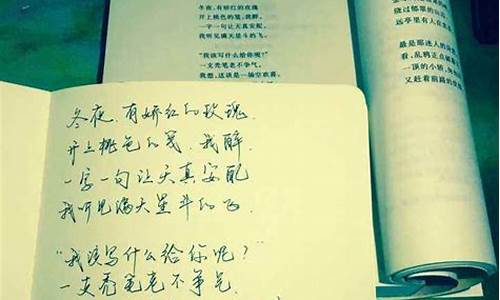 冬夜，有娇红的玫瑰
开上桃色的笺，我醉，
一字一句让天真安配
我听见满天星斗的飞。
“我该写什么给你呢？”
一支秃笔老不争气，
我想，这该是一场空欢喜，
冬夜，有娇红的玫瑰
开上桃色的笺。我醉
一字一句让天真安配
我听见满天星斗的飞.
“我该写什么给你呢？”
一支秃笔老不争气.
绕过郁郁的山
远亭里有人在
最是那迷人的
看，乱鸦正占据
一顶的小轿，
又赶着前路的